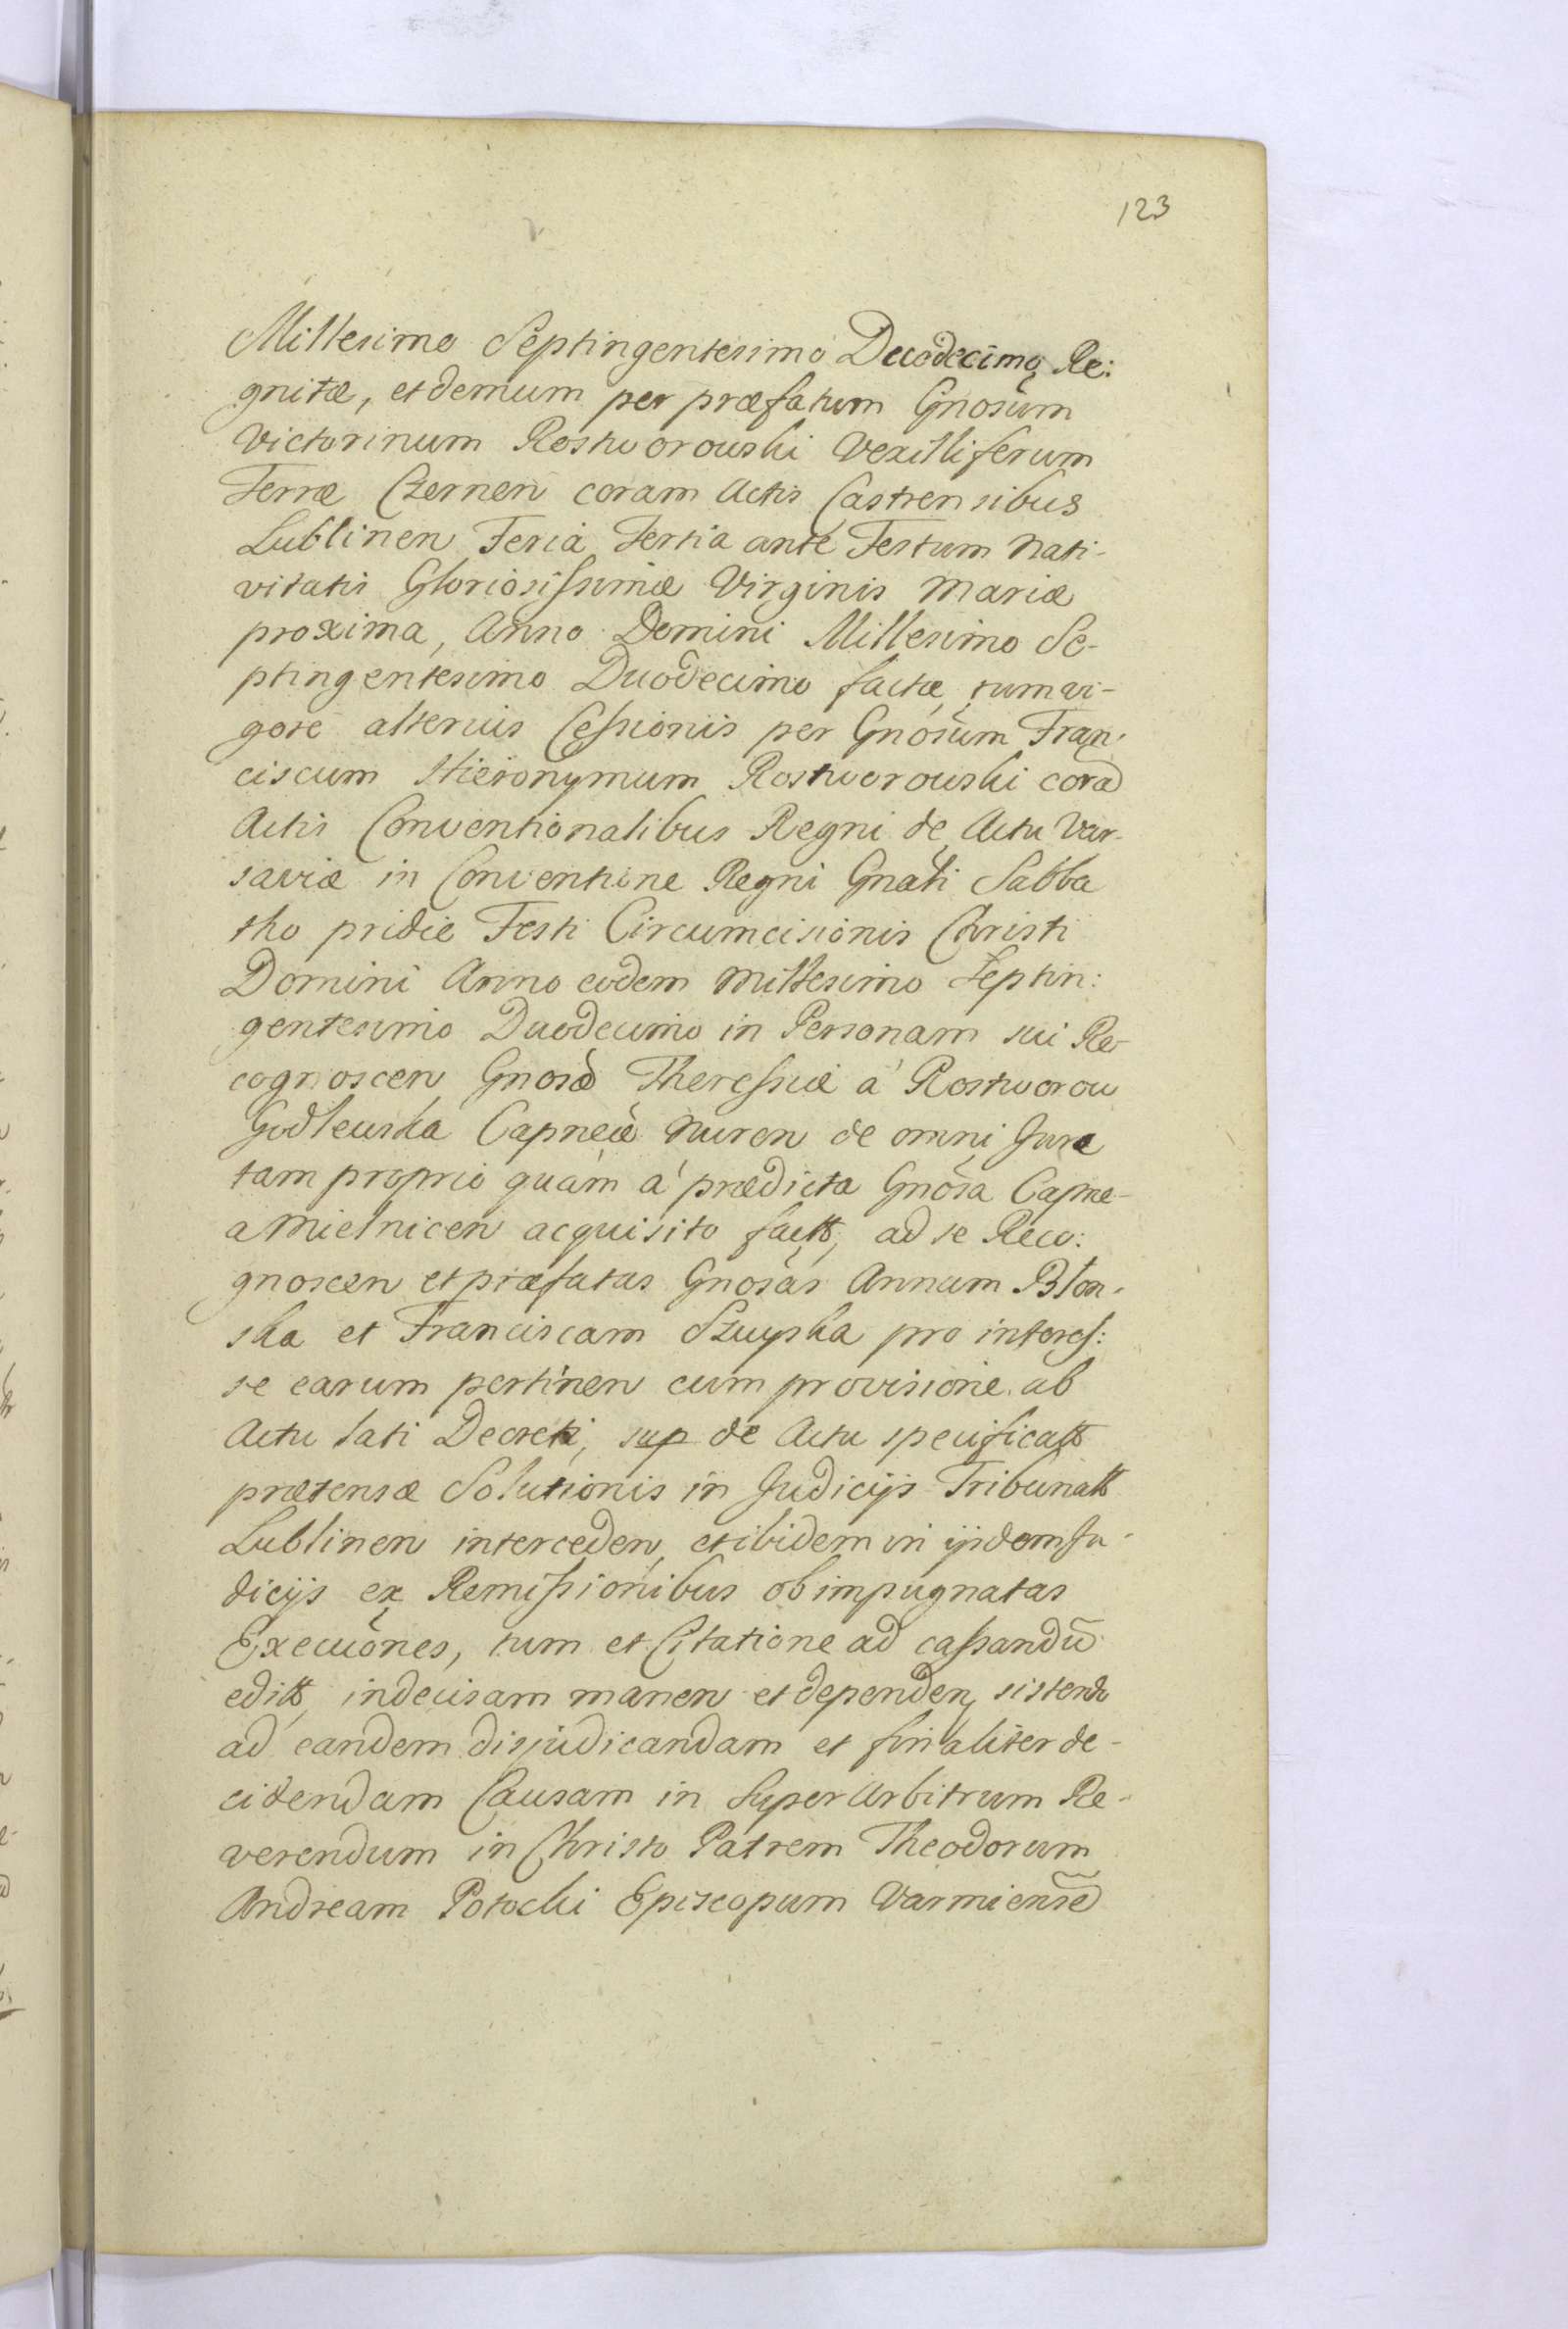 123
Millesimo Septingentesimo Duodecimo Re:
gnitæ, et demum per præfatum Gnosum
Victorinum Rostworowski Vexilliferum
Terræ Czernen coram Actis Castrensibus
Lublinen Feria Tertia ante Festum Nati-
vitatis Gloriosissimæ Virginis Mariæ
proxima, Anno Domini Millesimo Se-
ptingentesimo Duodecimo factæ, tum vi-
gore alterius Cessionis per Gnosum Fran-
ciscum Hieronymum Rostworowski cora
Actis Conventionalibus Regni de Actu Var-
saviæ in Conventione Regni Gnali Sabba
tho pridie Festi Circumcisionis Christi
Domini Anno eodem Millesimo Septin:
gentesimo Duodecimo in Personam sui Re-
cognoscen Gnosæ Theressiæ à Rostworow
Godlewska Capneæ Nuren de omni Jure
tam proprio quàm à prædicta Gnosa Capne-
a Mielnicen acquisito factt, ad se Reco:
gnoscen et præfatas Gnosas Annam Błon-
ska et Franciscam Szuyska pro interes:
se earum pertinen cum provisione ab
Actu lati Decreti, sup de Actu specificatt
prætensæ Solutionis in Judicijs Tribunatt
Lublinen interceden, et ibidem in ijsdem Ju-
dicijs ex Remissionibus ob impugnatas
Execuones, tum et Citatione ad cassandū
editt, indecisam manen et dependen, sistendo
ad eandem disjudicandam et finaliter de-
cidendam Causam in Super Arbitrum Re-
verendum in Christo Patrem Theodorum
Andream Potocki Episcopum Varmiense